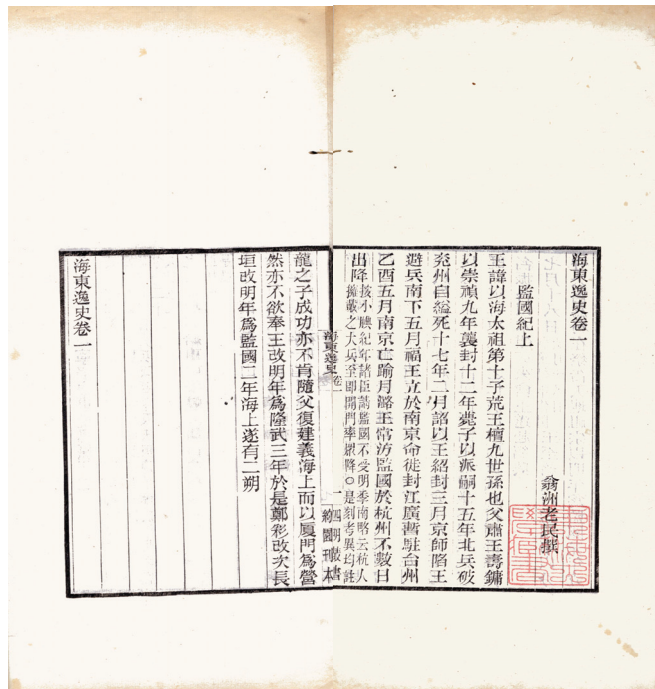 海東逸史卷一
翁洲老民撰
監國紀上
王諱以海太祖第十子荒王檀九世孫也父肅王壽鏞
以崇禎九年襲封十二年薨子以派嗣十五年北兵破
兖州自縊死十七年二月詔以王紹封三月京師陷王
避兵南下五月福王立於南京命徙封江廣暫駐台州
乙酉五月南京亡踰月潞王常淓監國於杭州不數日
出降按小腆紀年諸臣請監國不受明季南略云杭人
擁戴之大兵至即開門率眾降○是刻考異均註
海東逸史 卷一
一 四明叢書
約園刊本
龍之子成功亦不肯隨父復建義海上而以厦門為營
然亦不欲奉王改明年為隆武三年於是鄭彩改次長
垣改明年為監國二年海上遂有二朔
海東逸史卷一